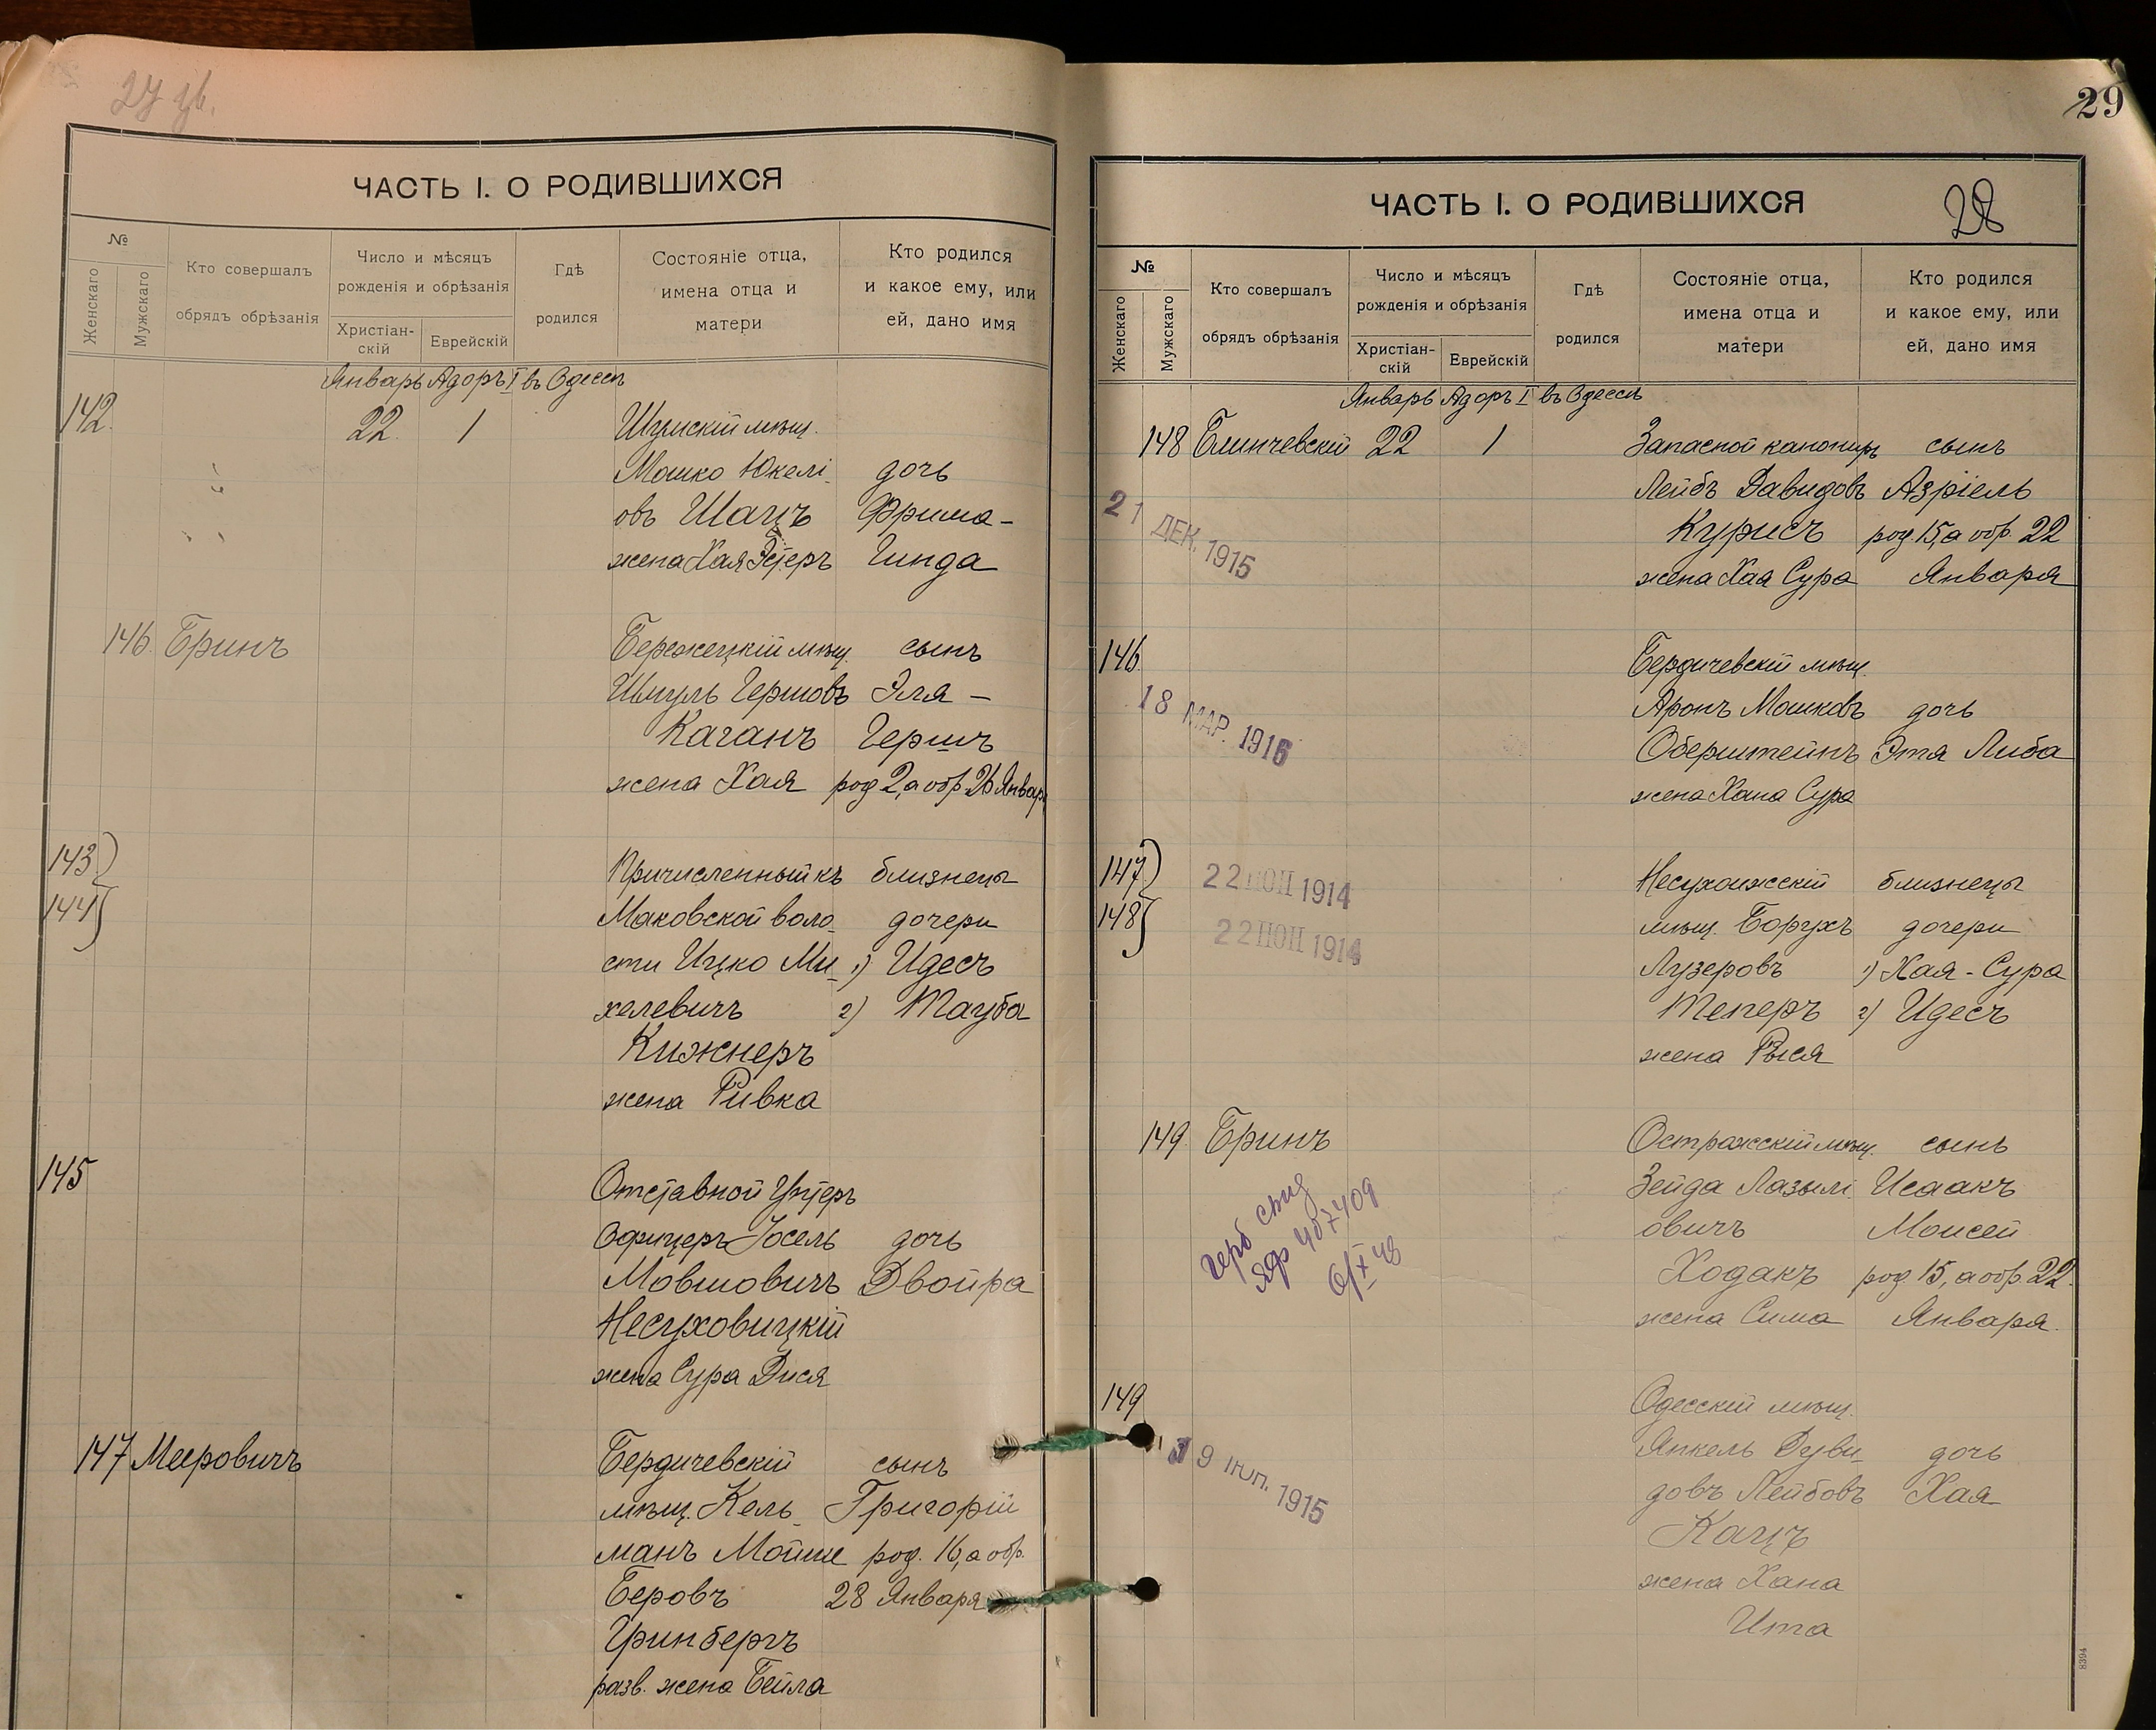 27 зв.
ЧАСТЬ I. О РОДИВШИХСЯ
№
Женскаго
Мужскаго
Кто совершалъ
обрядъ обрѣзанія
Число и мѣсяцъ
рожденія и обрѣзанія
Христіан-
скій
Еврейскій
Гдѣ
родился
Состояніе отца,
имена отца и
матери
Кто родился
и какое ему, или
ей, дано имя
Январь Адоръ I въ Одессѣ
142 22 1 Шумскій мѣщ.
Мошко Юкелі- дочь
овъ Шацъ Фрима-
жена Хая Эстеръ Гинда
146 Бринъ Бережецкій мѣщ. сынъ
Шмуль Гершовъ Эля-
Каганъ Гершъ
жена Хая род 2, а обр 26 Январ.
143 Причисленный къ близнецы
144 Маковской воло- дочери
сти Ицко Ми- 1) Идесъ
хелевичъ 2) Тауба
Кижнеръ
жена Ривка
145 Отставной Унтеръ
Офицеръ Іосель дочь
Мовшовичъ Двойра
Несуховицкій
жена Сура Дися
147 Мееровичъ Бердичевскій сынъ
мѣщ. Кель- Григорій
манъ Мойше род. 16, а обр.
Беровъ 28 Января
Гринбергъ
разв. жена Бейла
29
ЧАСТЬ I. О РОДИВШИХСЯ
28
№
Женскаго
Мужскаго
Кто совершалъ
обрядъ обрѣзанія
Число и мѣсяцъ
рожденія и обрѣзанія
Христіан-
скій
Еврейскій
Гдѣ
родился
Состояніе отца,
имена отца и
матери
Кто родился
и какое ему, или
ей, дано имя
Январь Адоръ I въ Одессѣ
148 Блинчевскій 22 1 Запасной канониръ сынъ
Лейбъ Давидовъ Азріель
21 ДЕК. 1915
Курисъ род 15, а обр. 22
жена Хая Сура Января
146 Бердичевскій мѣщ.
18 МАР. 1916
Аронъ Мошковъ дочь
Оберштейнъ Этя Либа
жена Хана Сура
147 22 1914 Несухоижскій близнецы
148 22 1914 мѣщ. Борухъ дочери
Лузеровъ 1) Хая-Сура
Теперъ 2) Идесъ
жена Рыся
149 Бринъ Острожскій мѣщ. сынъ
Зейда Лазылі- Исаакъ
овичъ Моисей
Ходакъ род. 15, а обр 22.
жена Сима Января.
герб
ЯФ 407409
6/X 48
149 Одесскій мѣщ.
Янкель Дуви- дочь
1915
довъ Лейбовъ Хая
Кацъ
жена Хана
Ита
8394